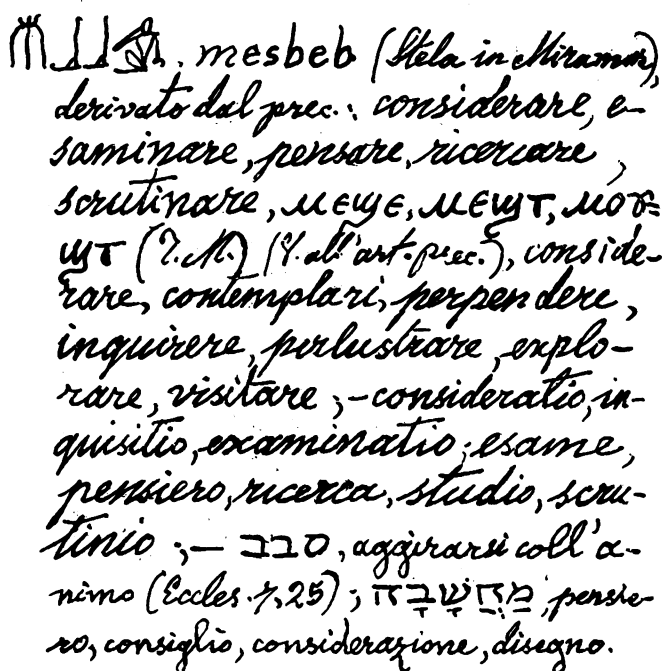 . mesbeb (Stela in Miramar),
derivato dal prec.: considerare, e-
saminare, pensare, ricercare,
scrutinare, ⲙⲉϣⲉ, ⲙⲉϣⲧ, ⲙⲟⲩ=
ϣⲧ (T.M.) (V. all'art. prec.), conside-
rare, contemplari, perpendere,
inquirere, perlustrare, explo-
rare, visitare; – consideratio, in-
quisitio, examinatio; esame,
pensiero, ricerca, studio, scru-
tinio; – סבב, aggirarsi coll'a-
nimo (Eccles. 7,25); מַחֲשָׁבָה, pensie-
ro, consiglio, considerazione, disegno.